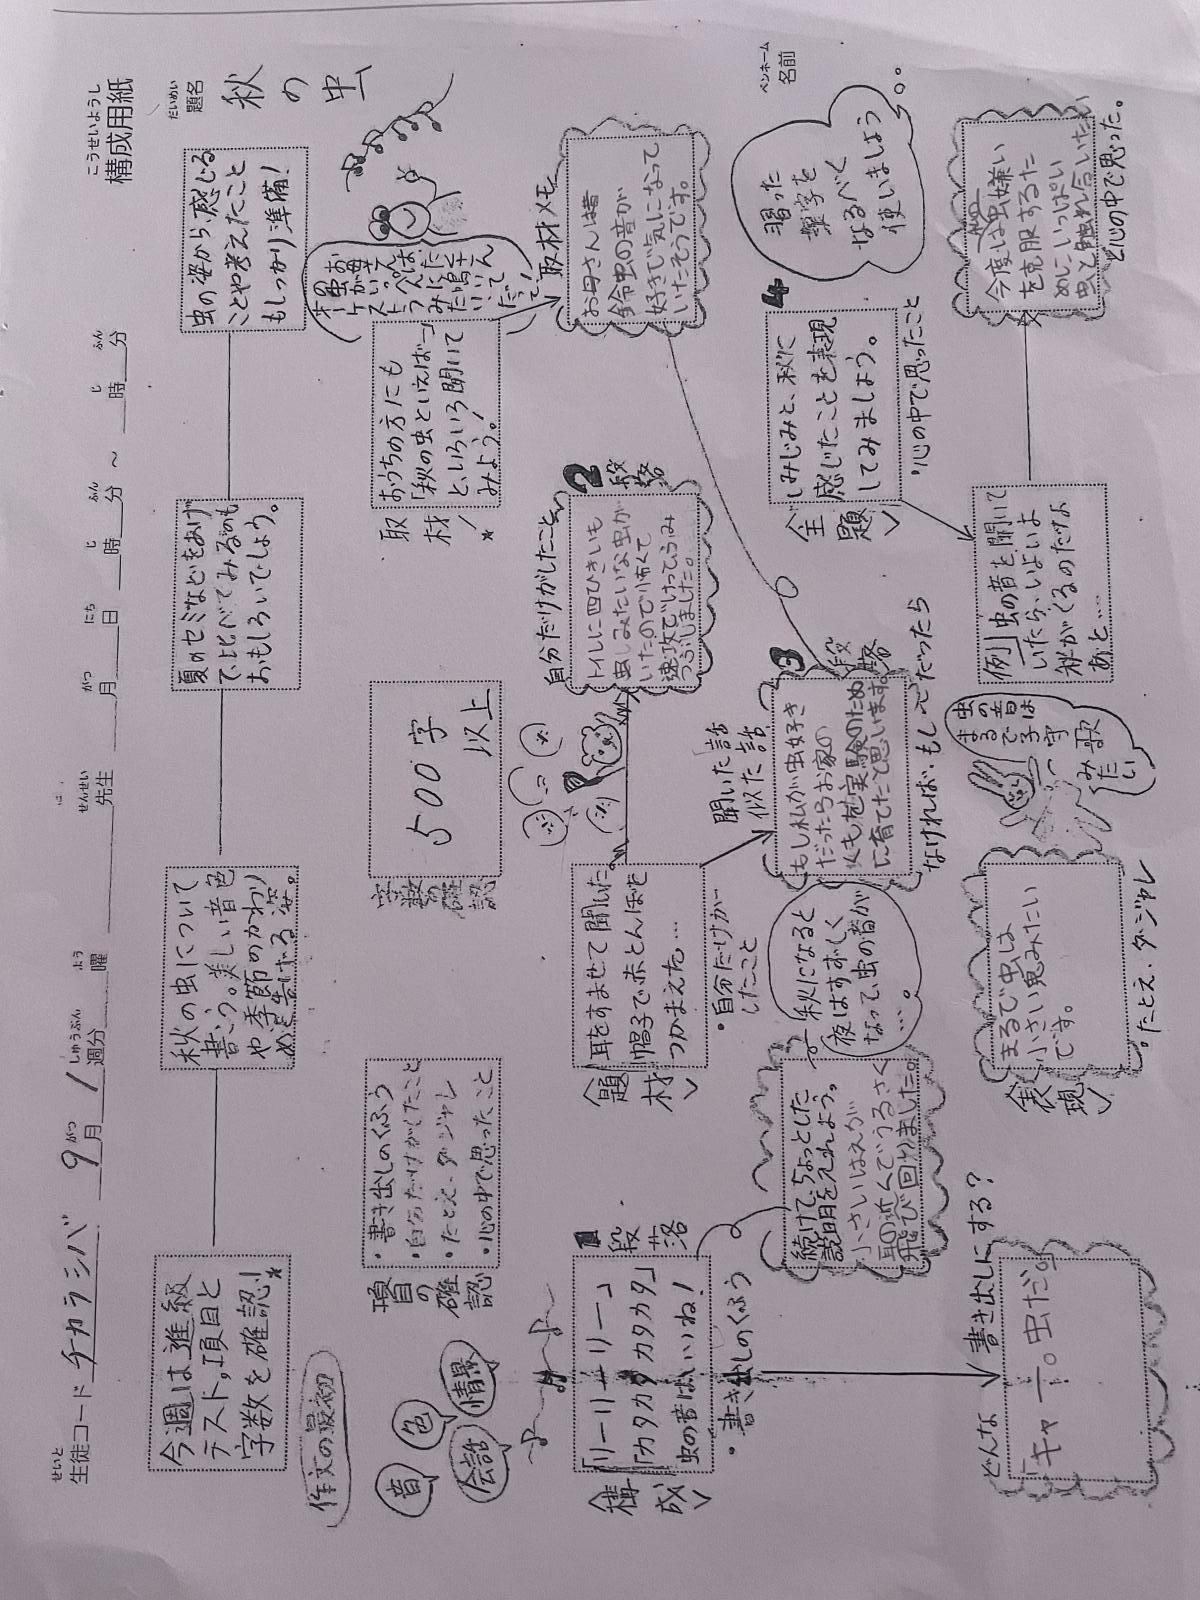 こうせいようし
構成用紙
せいと
生徒コード チカラシバ 9 がつ月 1 しゅうぶん週分 よう曜 せんせい先生 がつ月 にち日 じ時 ふん分 ～ じ時 ふん分
だいめい
題名
秋の虫
今週は進級
テスト。項目と
字数を確認!
秋の虫について
書こう。美しい音色
や季節のかわり
めを告げる姿。
夏のセミなどをあげ
て、比べてみるのも
おもしろいでしょう。
虫の姿から感じる
ことや考えたこと
もしっかり準備!
作文の最初
音
色
会話
情景
項目の確認
・書き出しのくふう
・自分だけがしたこと
・たとえ・ダジャレ
・心の中で思ったこと
字数の確認
500字
以上
取材!
おうちの方にも
「秋の虫といえば…」
と、いろいろ聞いて
みよう!
取材メモ
お母さんは昔
鈴虫の音が
好きで気になって
いたそうです。
<構成>
1段落
「リーリーリーリー」
「カタカタカタカタ」
虫の音はいいね!
・書き出しのくふう
続けて、ちょっとした
説明を入れよう。
小さいはえが
耳の近くでうるさく
飛び回りました。
秋になると
夜はすずしく
なって、虫の音が
…。
<題材>
耳をすませて聞いた
帽子で赤とんぼを
つかまえた…
・自分だけが
したこと
自分だけがしたこと
2段落
トイレに四ひきいも
虫みたいな虫が
いたので怖くて
速攻でティッシュでふみ
つぶしました。
聞いた話
似た話
3段落
もし私が虫好き
だったらお家の
火も を実験のため
に育てたと思います。
なければ・もし〜だったら
4
<主題>
しみじみと、秋に
感じたことを表現
してみましょう。
・心の中で思ったこと
ペンネーム
名前
習った
漢字を
なるべく
使いましょう
どんな書き出しにする?
「キャー。虫だ。」
<表現>
まるで虫は
小さい鬼みたい
です。
・たとえ・ダジャレ
虫の音は
まるで子守
歌
みたい
例」虫の音を聞いて
いたら、いよいよ
秋がくるのだなぁ
あと……
今度は虫嫌い
を克服するた
めにいっぱい
虫と触れ合いたい
と心の中で思った。